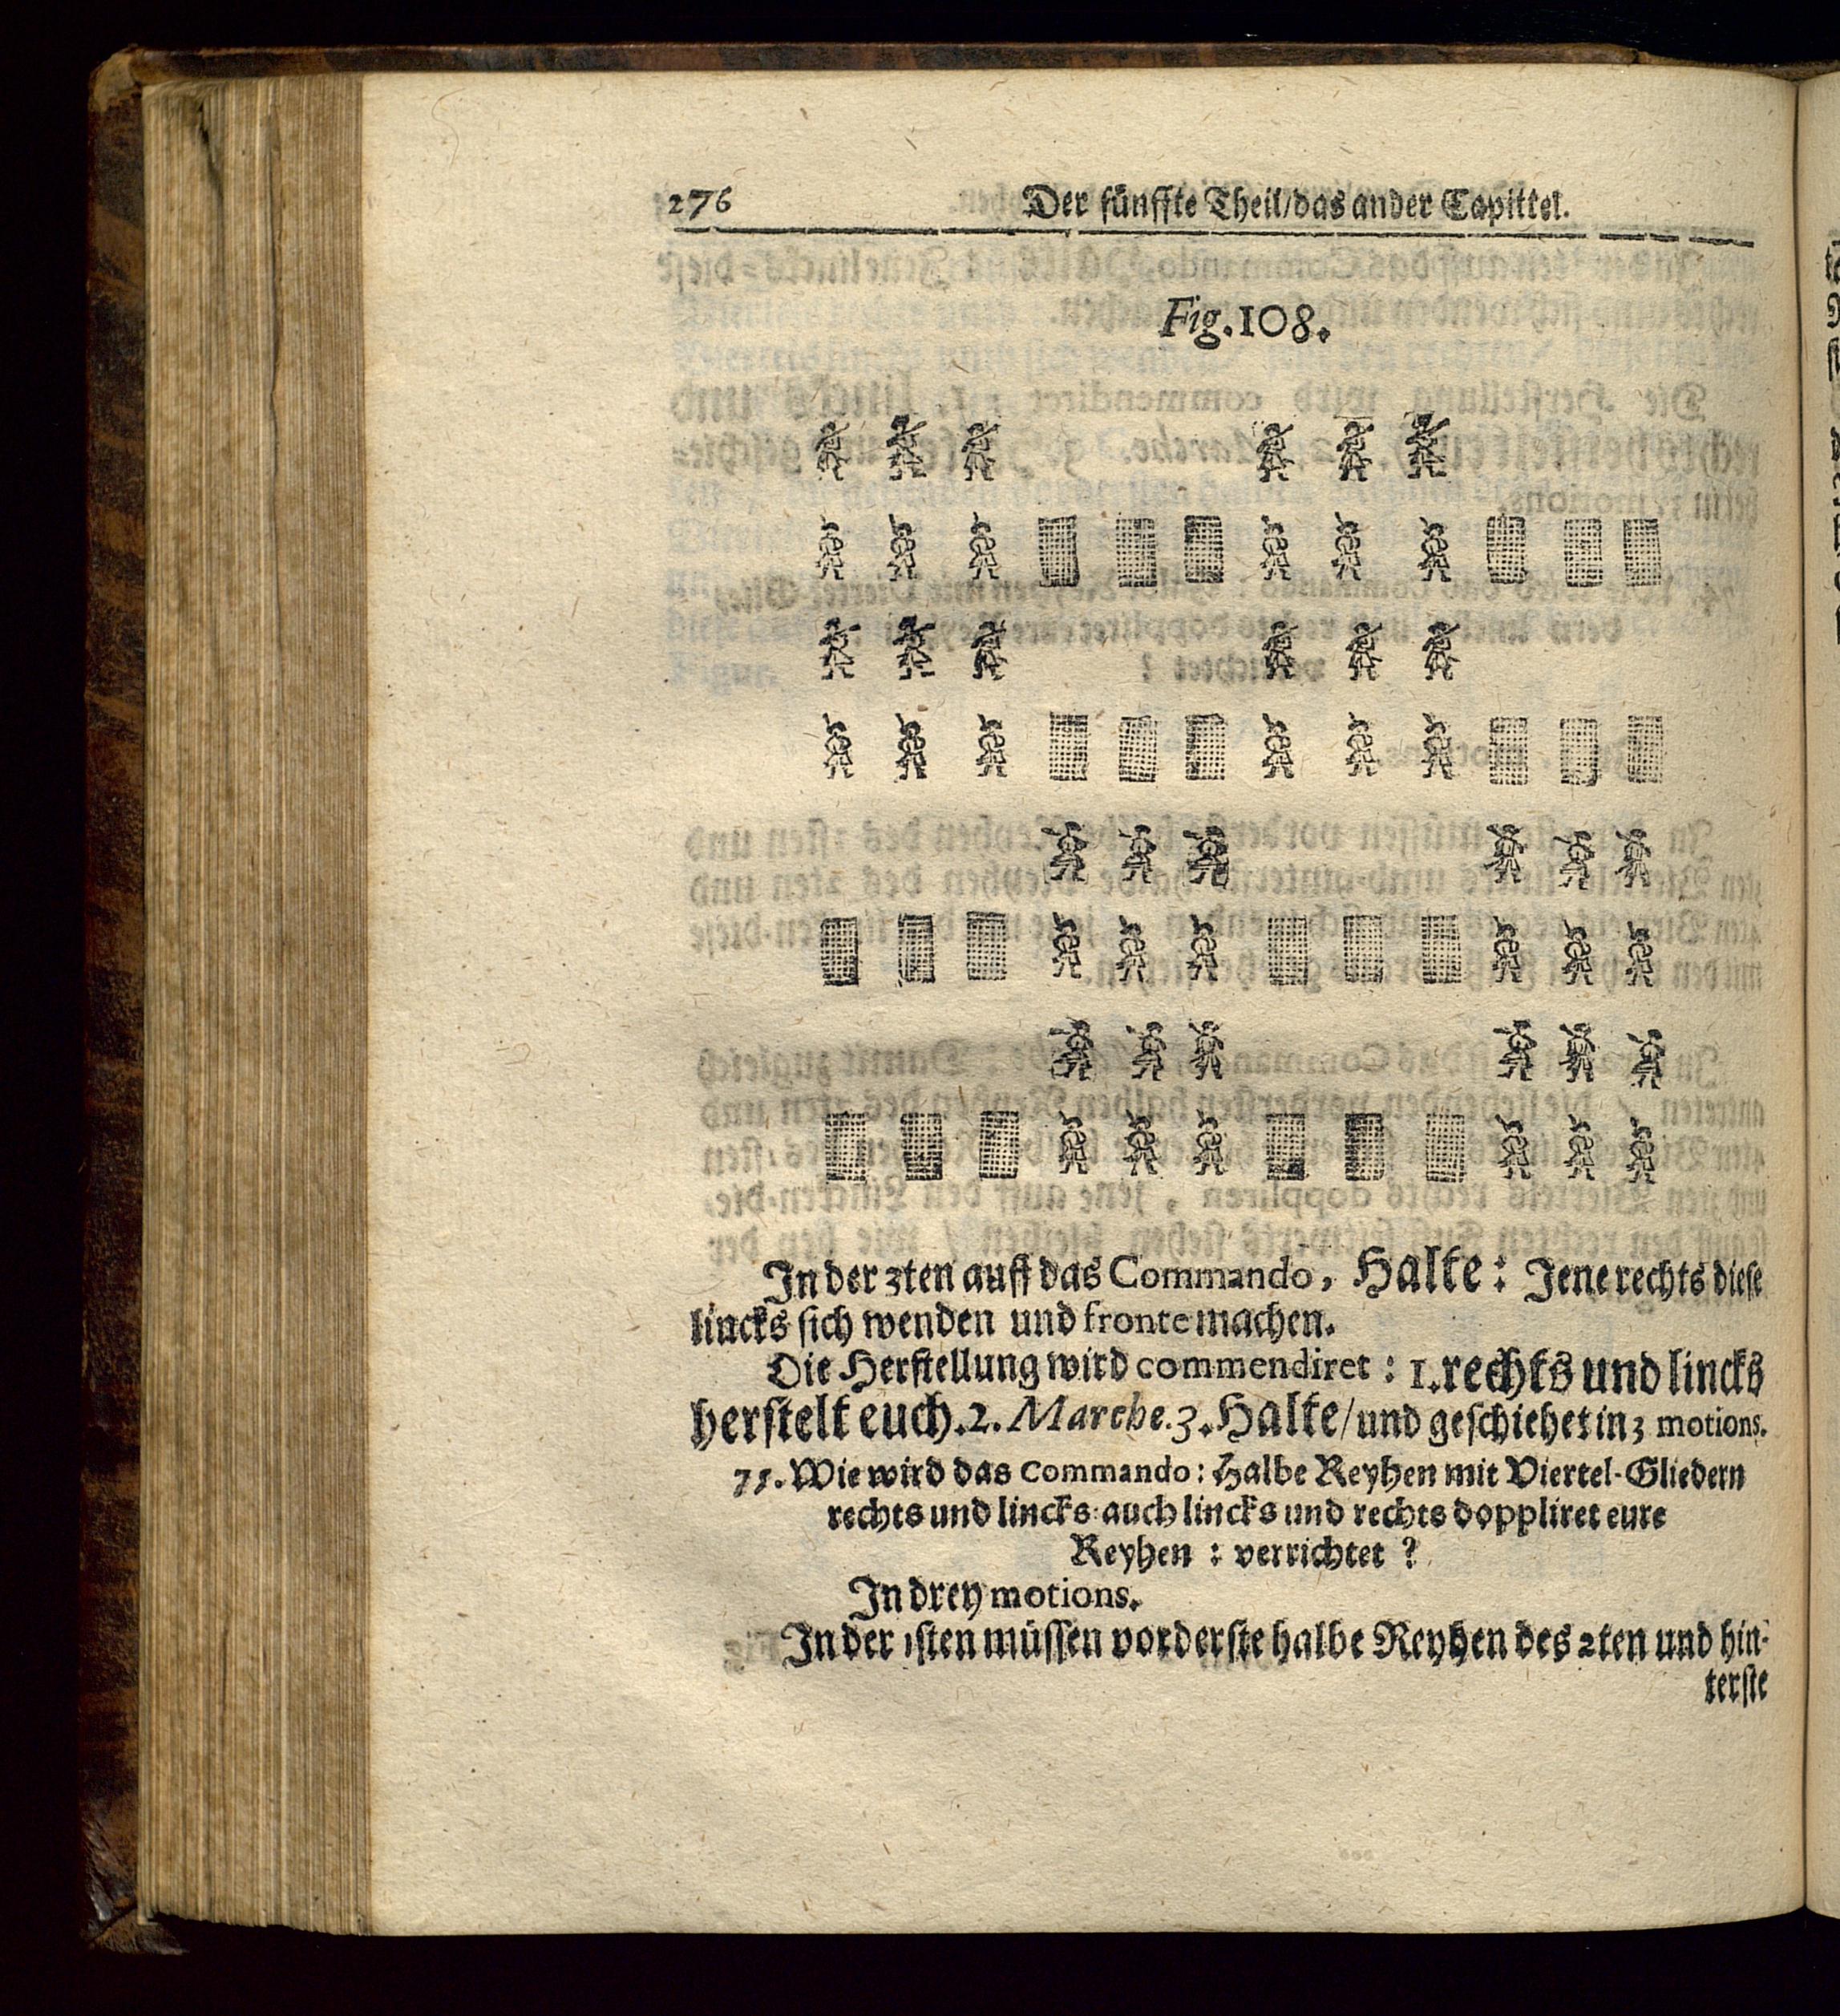 276 Der fünffte Theil/das ander Capittel.
Fig. 108.
In der 3ten auff das Commando, Halte: Jene rechts diese
lincks sich wenden und fronte machen.
Die Herstellung wird commendiret: 1. rechts und lincks
herstelt euch. 2. Marche. 3. Halte/und geschiehet in 3 motions.
75. Wie wird das Commando: Halbe Reyhen mit Viertel-Gliedern
rechts und lincks auch lincks und rechts doppliret eure
Reyhen: verrichtet?
In drey motions.
In der 1sten müssen vorderste halbe Reyhen des 2ten und hin-
terste